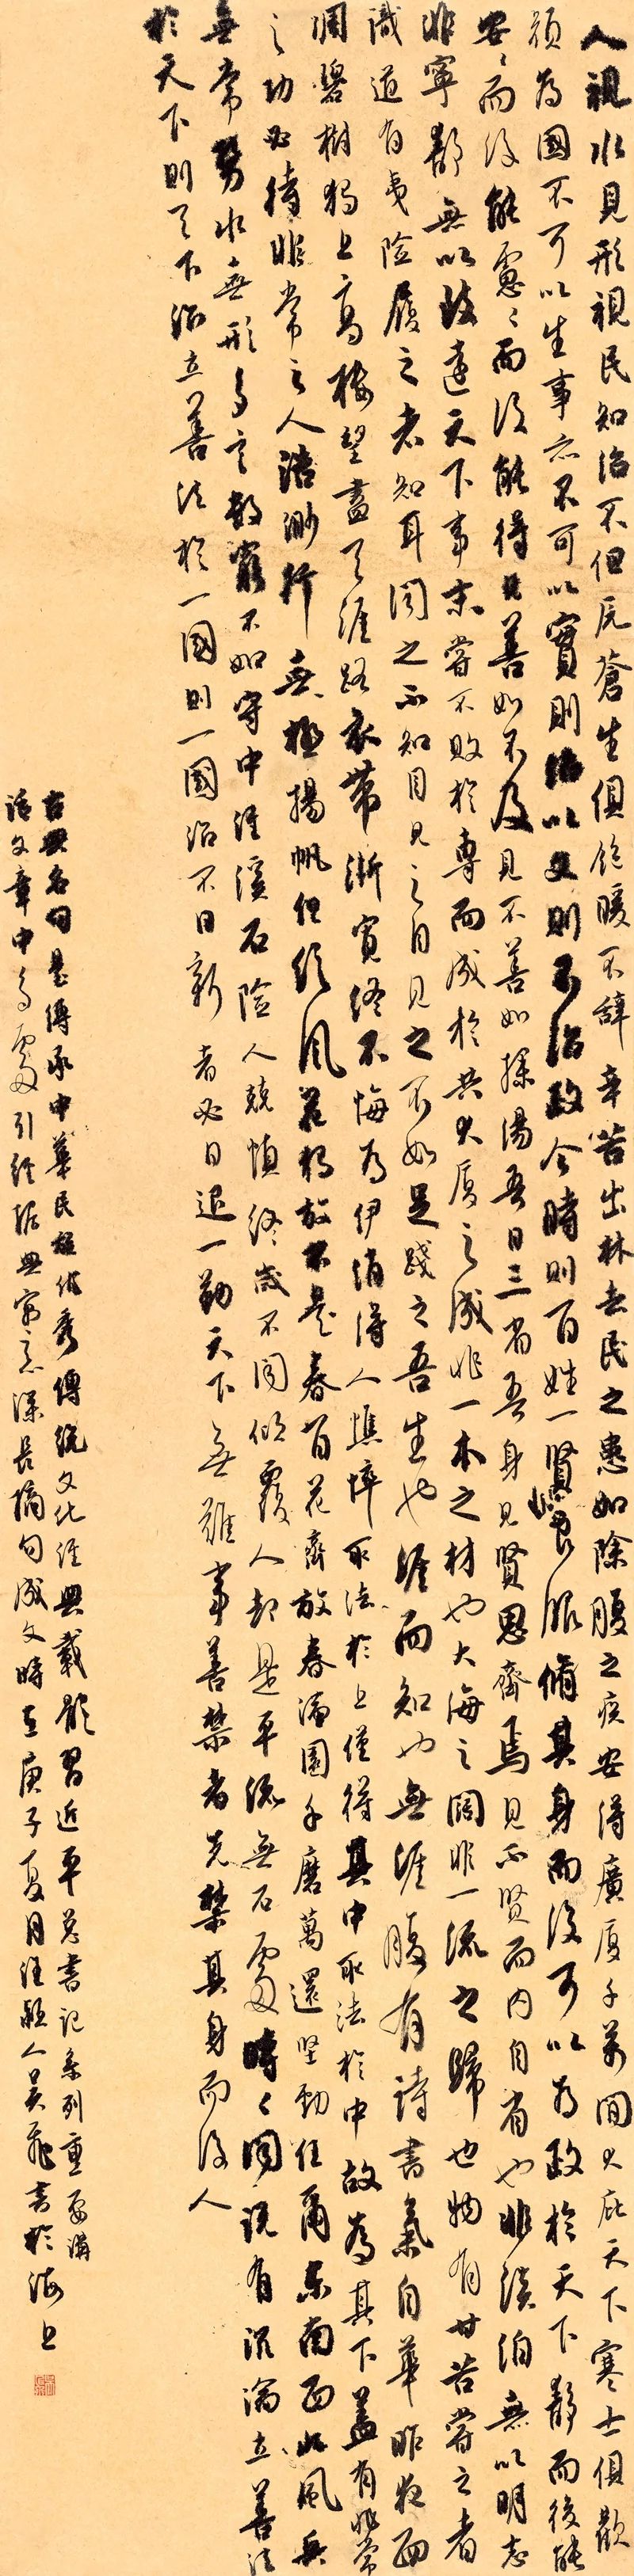 人視水見形視民知治不但願蒼生俱飽暖不辭辛苦出林去民之患如除腹之疾安得廣厦千萬間大庇天下寒士俱歡
顏為國不可以生事亦不可以實則治以文則不治政令時則百姓一賢良服脩其身而後可以為政於天下靜而後能
安安而後能慮慮而後能得見善如不及見不善如探湯吾日三省吾身見賢思齊焉見不賢而內自省也非淡泊無以明志
非寧靜無以致遠天下事未嘗不敗於專而成於共大厦之成非一木之材也大海之闊非一流之歸也物有甘苦嘗之者
識道有夷險履之者知耳聞之不如目見之目見之不如足踐之吾生也涯而知也無涯腹有詩書氣自華昨夜西
風凋碧樹獨上高樓望盡天涯路衣帶漸寬終不悔為伊消得人憔悴取法於上僅得其中取法於中故為其下蓋有非常
之功必待非常之人浩渺行無極揚帆但信風花獨放不是春百花齊放春滿園千磨萬還堅勁任爾東南西北風兵
無常勢水無形多言數窮不如守中涇溪石險人兢慎終歲不聞傾覆人却是平流無石處時時聞說有沉淪立善法
於天下則天下治立善法於一國則一國治不日新者必日退一勤天下無難事善禁者先禁其身而後人
古典名句是傳承中華民族優秀傳統文化經典載體習近平总書記系列重要講
話文章中多處引經據典寓意深長摘句成文時在庚子夏月涇縣人吳飛書於海上